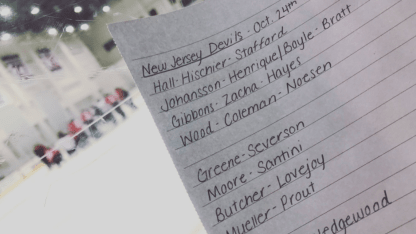 New Jersey Devils · Oct. 24th
Hall · Hischier · Stafford
Johansson · Henrique/Boyle · Bratt
Gibbons · Zacha · Hayes
Wood · Coleman · Noesen
Greene · Severson
Moore · Santini
Butcher · Lovejoy
Mueller · Prout